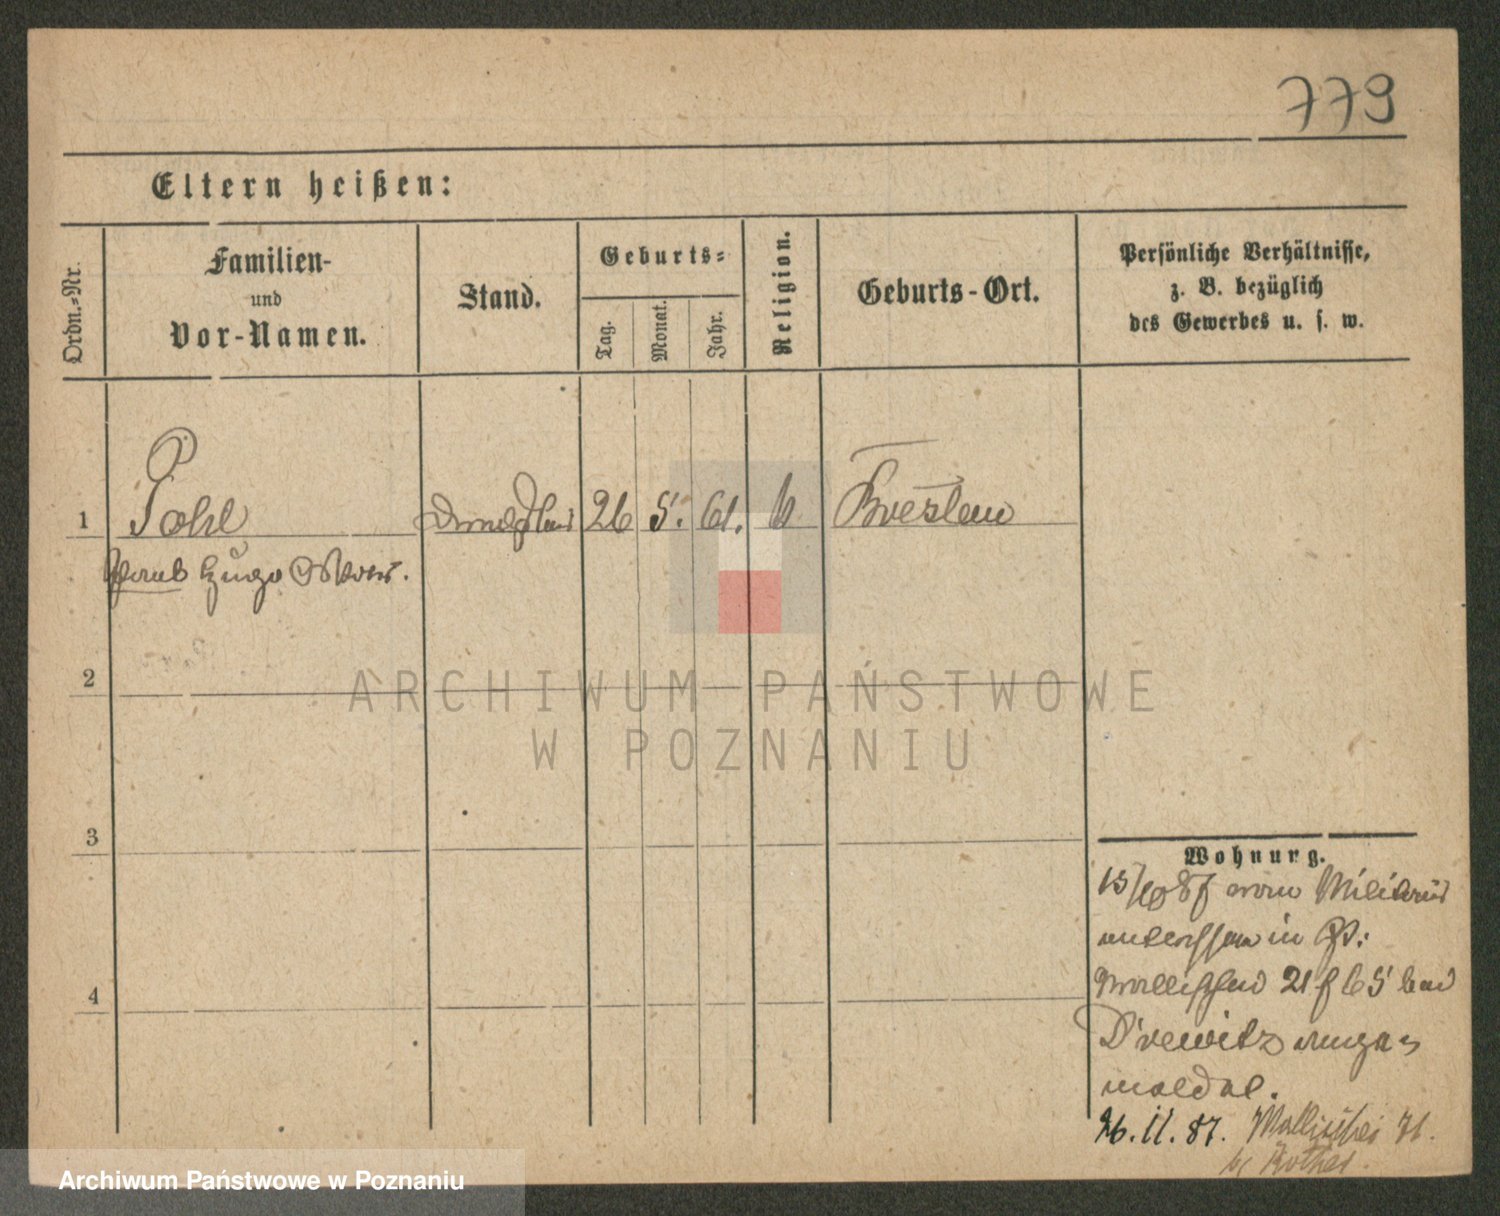 779
Eltern heißen:
Ordn.-Nr.
Familien-
und
Vor-Namen.
Stand.
Geburts-
Tag.
Monat.
Jahr.
Religion.
Geburts-Ort.
Persönliche Verhältnisse,
z. B. bezüglich
des Gewerbes u. s. w.
1
Pohl
26
5.
61.
Breslau
Paul Hugo Oskar.
2
ARCHIWUM PAŃSTWOWE
W POZNANIU
3
Wohnung.
15/10 87 vom Militair
entlassen in
Wallischei 21 bei
Drewitz ange
meldet.
4
26.11.87. Wallischei 71.
b/ Rother.
Archiwum Państwowe w Poznaniu